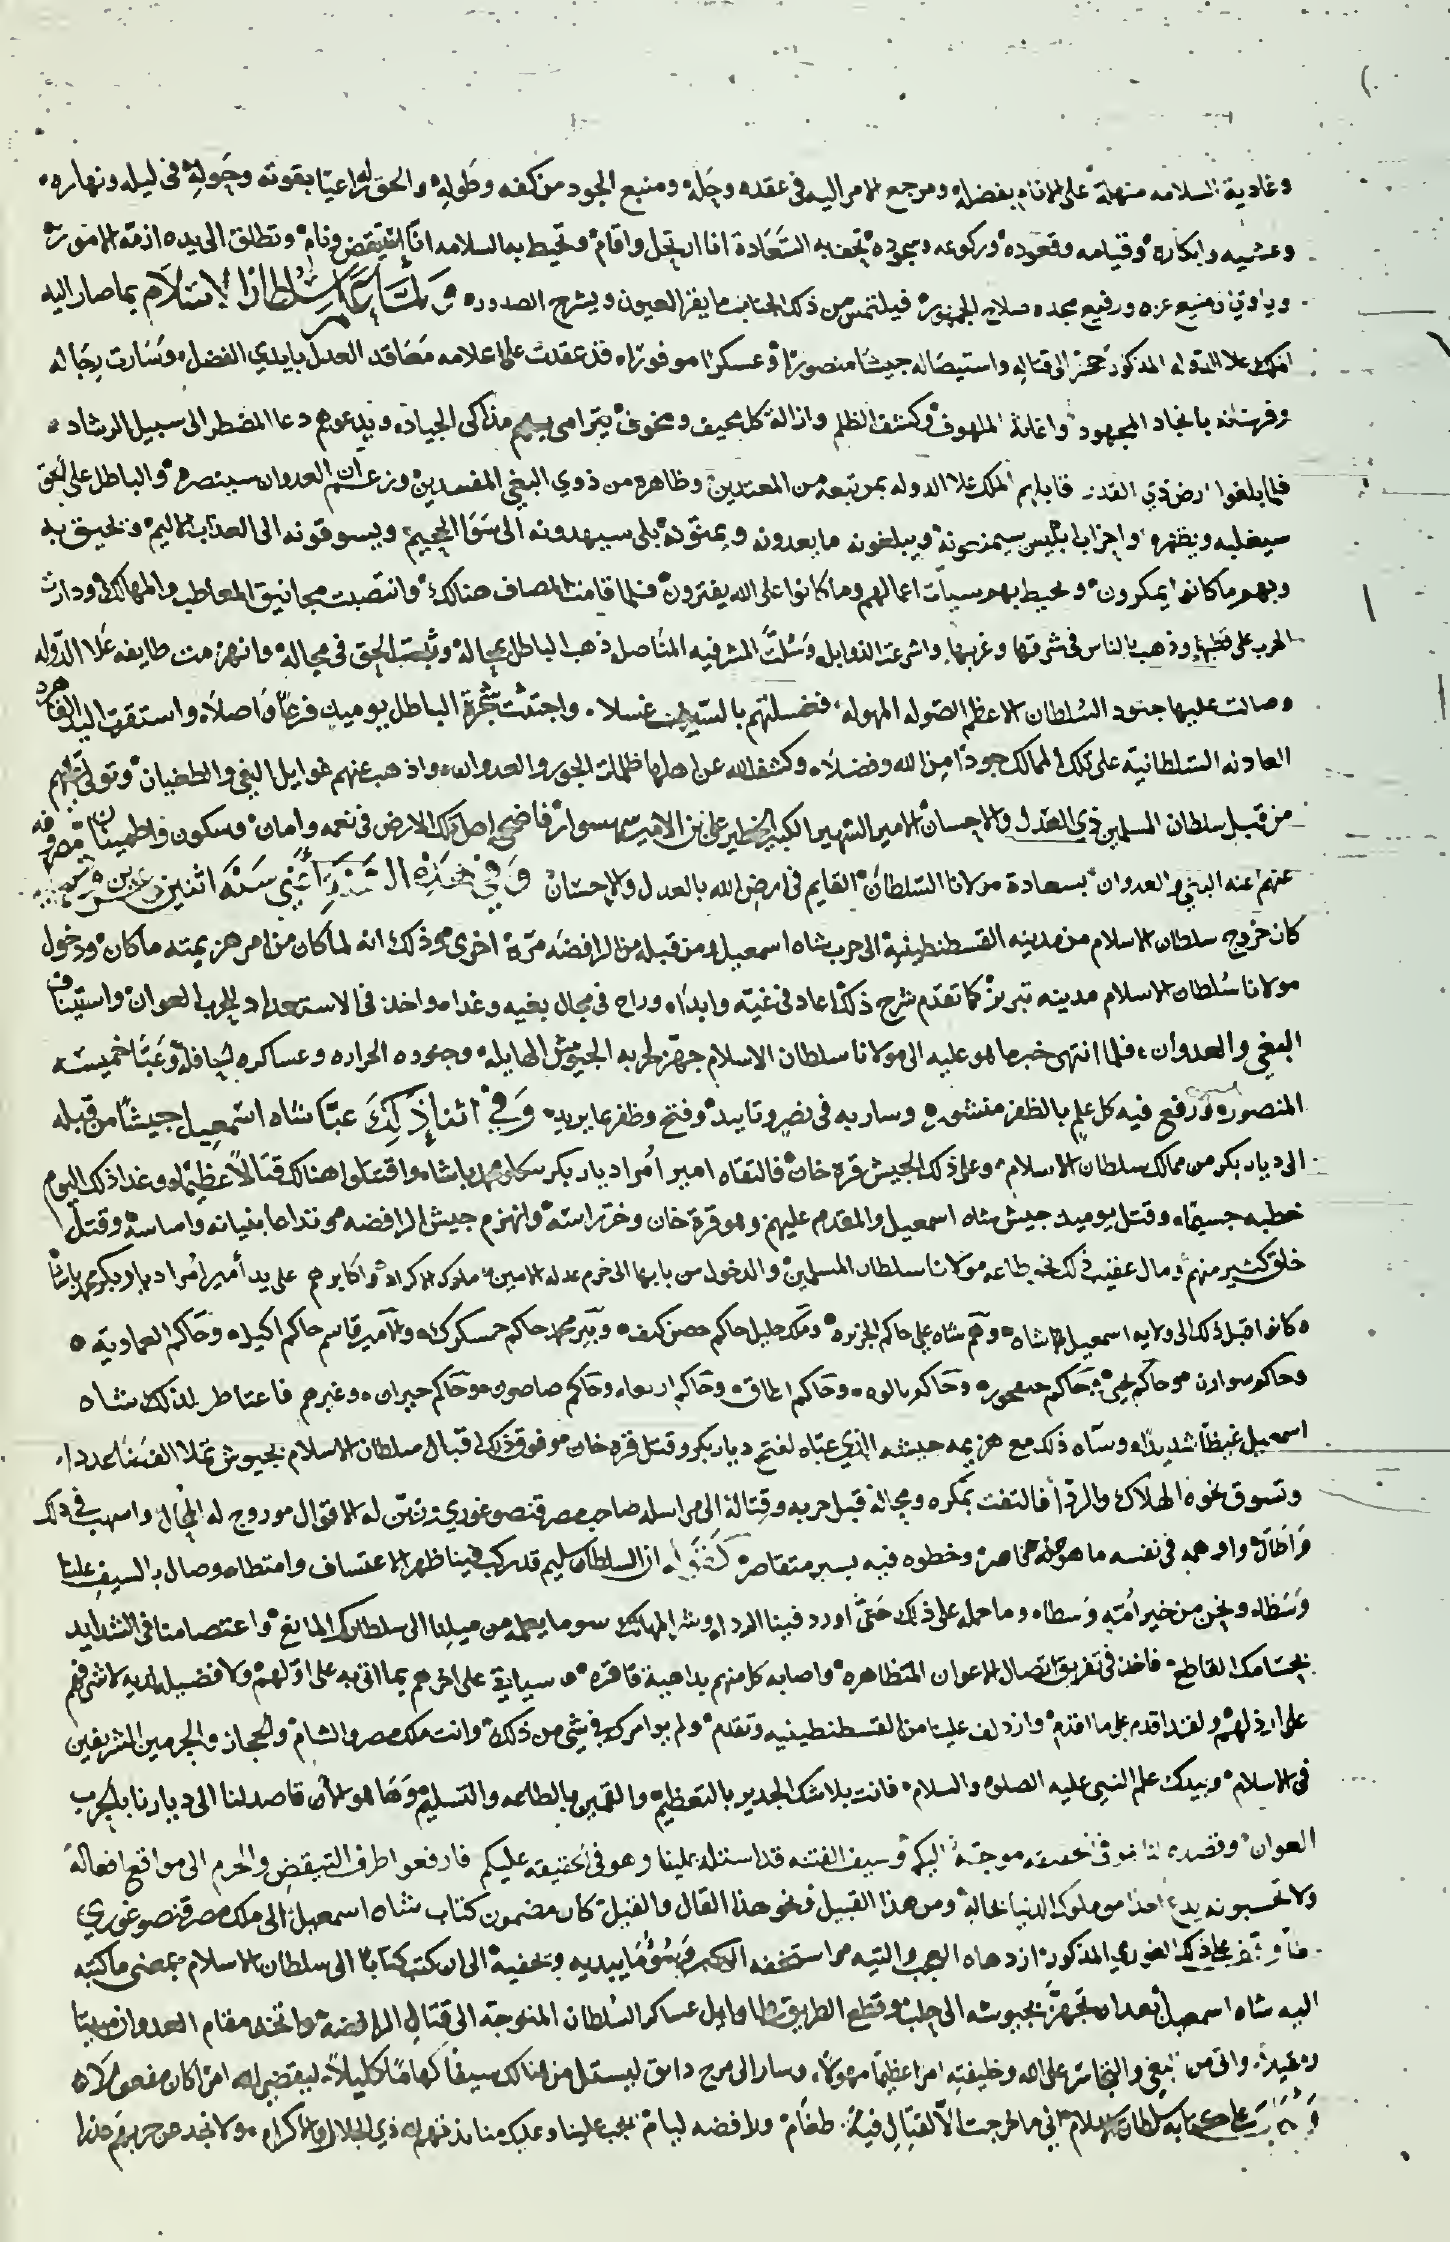 وغادية السلامه منهلة على الانام بفضله ومرجع الامر اليه في عقده وحله ومنبع الجود من كفه وطوله والحق له راعيا بقوته وحوله في ليله ونهاره
وعشيه وابكاره وقيامه وقعوده وركوعه وسجوده تحف به السعادة انا ارتحل واقام وتحيط به السلامه انا استيقض ونام وتطلق الى يده ازمة الامور
وياوي الى منيع عزه ورفيع مجده صلاح الجمهور فيلتمس من ذلك الجناب ما يقر العيون ويشرح الصدور ولما سمع سلطان الاسلام بما صار اليه
الملك علا الدوله المذكور جهز الى قتاله واستيصاله جيشا منصورا وعسكرا موفورا قد عقدت على اعلامه معاقد العدل بايدي الفضل وسارت رجاله
وفرسانه بانجاد المجهود واغاثة الملهوف وكشف الظلم وازالة كل محيف ومخوف يترامى بهم مذاكى الجياد ويدعوهم دعا المضطر الى سبيل الرشاد
فلما بلغوا ارض ذي القدر قابلهم الملك علا الدوله بمن تبعه من المعتدين وظاهره من ذوي البغي المفسدين وزعم ان العدوان سينصره والباطل على الحق
سيغلبه ويظهره واحزاب ابليس سيمنعونه ويبلغونه ما يعدونه ويمنونه بلى سيهدونه الى سوا الجحيم ويسوقونه الى العذاب الاليم ويحيق به
وبهم ما كانوا يمكرون ويحيط بهم سيات اعمالهم وما كانوا على الله يفترون فلما قامت المصاف هنالك وانتصبت مجانيق المعاطب والمهالك ودارت
الحرب على قطبها وذهب بالناس في شرقها وغربها واشرعت الذوابل وسلت المشرفيه المناصل ذهب الباطل بمحاله وثبت الحق في مجاله وانهزمت طايفه علا الدوله
وصالت عليها جنود السلطان الاعظم الصوله المهوله فغسلتهم بالسيف غسلا واجتثت شجرة الباطل يوميذ فرعا واصلا واستقرت اليد القاهره
العادله السلطانية على تلك الممالك جودا من الله وفضلا وكشف الله عن اهلها ظلمات الجور والعدوان واذهب عنهم غوايل البغي والطغيان وتولى عليهم
من قبل سلطان المسلمين ذي العدل والاحسان الامير الشهير الكبير الخطير علي بن الامير سهسوار فاضحى اهل تلك الارض في نعمه وامان وسكون واطمينان مصروفه
عنهم اعنه البغي والعدوان بسعادة مولانا السلطان القايم في ارض الله بالعدل والاحسان وفي هذه السنة اعني سنة اثنين وعشرين وتسعمايه
كان خروج سلطان الاسلام من مدينه القسطنطينية الى حرب شاه اسمعيل ومن قبله من الرافضه مرة اخرى وذلك انه لما كان من امر هزيمته ما كان ودخول
مولانا سلطان الاسلام مدينه تبريز كما تقدم شرح ذلك اعاد في غيه وابداه وراح في مجال بغيه وغدا واخذ في الاستعداد لحرب العوان واستيناف
البغي والعدوان فلما انتهى خبر ما هو عليه الى مولانا سلطان الاسلام جهز لحربه الجيوش الهايله وجنوده الجراره وعساكره الحافله وعبا خميسه
المنصور ورفع فيه كل علم بالظفر منشور وسار به في نصر وتاييد وفتح وظفر بما يريد وفي اثنا ذلك عبا شاه اسمعيل جيشا من قبله
الى ديار بكر من ممالك سلطان الاسلام وعلى ذلك الجيش قرة خان فالتقاه امير امرا ديار بكر محمد باشا واقتتلوا هنالك قتالا عظيما وغدا ذلك اليوم
خطبه جسيما وقتل يوميذ جيش شاه اسمعيل والمقدم عليهم وهو قرة خان وخز راسه وانهزم جيش الرافضه وتداعا بنيانه واساسه وقتل
خلق كثير منهم ومال عقيب ذلك الى طاعه مولانا سلطان المسلمين والدخول من بابها الى حرم عدله الامين ملوك الاكراد واكابرهم على يد أمير امرا ديار بكر محمد باشا
وكانوا قبل ذلك الى ولايه اسمعيل شاه وهم شاه علي حاكم الجزيره وملك خليل حاكم حصن كيفه وبير محمد حاكم والامير قاسم حاكم اكيل وحاكم العماديه
وحاكم سوارن وحاكم وحاكم وحاكم بالوه وحاكم اطاق وحاكم وحاكم صاصون وحاكم حيزان وغيرهم فاغتاظ لذلك شاه
اسمعيل غيظا شديدا وساه ذلك مع هزيمه جيشه الذي عباه لفتح ديار بكر وقتل قره خان وفوق ذلك اقبال سلطان الاسلام بجيوش تملا الفضا عددا
وتسوق نحوه الهلاك والردا فالتفت بمكره ومحاله قبل حربه وقتاله الى مراسله صاحب مصر قنصو غوري وزين له الاقوال وروج له المحال واسهب في ذلك
واطال واوهمه في نفسه ما هو وخطوه فيه بسير متقاصر كقوله ان السلطان سليم قد ركب فينا ظهر الاعتساف وامتطاه وصال بالسيف علينا
وسطاه ونحن من خير امته وسطاه وما حمله على ذلك حتى اورد فينا الردا وشر المهالك سوى ما يعلمه من ميلنا الى سلطانك المانع واعتصامنا في الشدايد
بحسامك القاطع فاخذ في تفريق اتصال الاعوان المتظاهره واصابه كل منهم بداهية فاقره وسياتي على اخرهم بما اتى به على اولهم ولا فضيله لديه لاشرفهم
على ارذلهم ولقد اقدم على ما اقدم وازدلف علينا من القسطنطينيه وتقدم ولم يوامرك في شي من ذلك وانت ملك مصر والشام والحجاز والحرمين الشريفين
في الاسلام وبيدك علم النبي عليه الصلوه والسلام فانت بلا شك الجدير بالتعظيم والقمين بالطاعه والتسليم وها هو الان قاصد لنا الى ديارنا بالحرب
العوان وقصده لنا هو في الحقيقه موجه اليكم وسيف الفتنه قد استله علينا وهو في الحقيقه عليكم فارفعوا طرف التيقض والحزم الى مواقع افعاله
ولا تحسبونه يدع احدا من ملوك الدنيا بحاله ومن هذا القبيل ونحو هذا القال والقيل كان مضمون كتاب شاه اسمعيل الى ملك مصر قنصو غوري
فلما وقف على ذلك الغوري المذكور ازدهاه العجب والتيه واستخفه الكبر وسو ما يبديه ويخفيه الى ان كتب كتابا الى سلطان الاسلام بمعنى ما كتبه
اليه شاه اسمعيل بعد ان تجهز بجيوشه الى حلب وقطع الطريق على اوايل عساكر السلطان المتوجه الى قتال الرافضه واتخذ مقام العدوان مبيتا
ومقيلا واتى من البغي والتجاسر على الله وخليفته امرا عظيما مهولا وسار الى مرج دابق ليستل من هنالك سيفا كهاما كليلا ليقضي الله امرا كان مفعولا
كتابه سلطان الاسلام اني ما خرجت الا لقتال فية طغام ورافضه ليام يجب علينا وعليك منابذتهم لله ذي الجلال والاكرام ولا نجد عن حربهم هذا